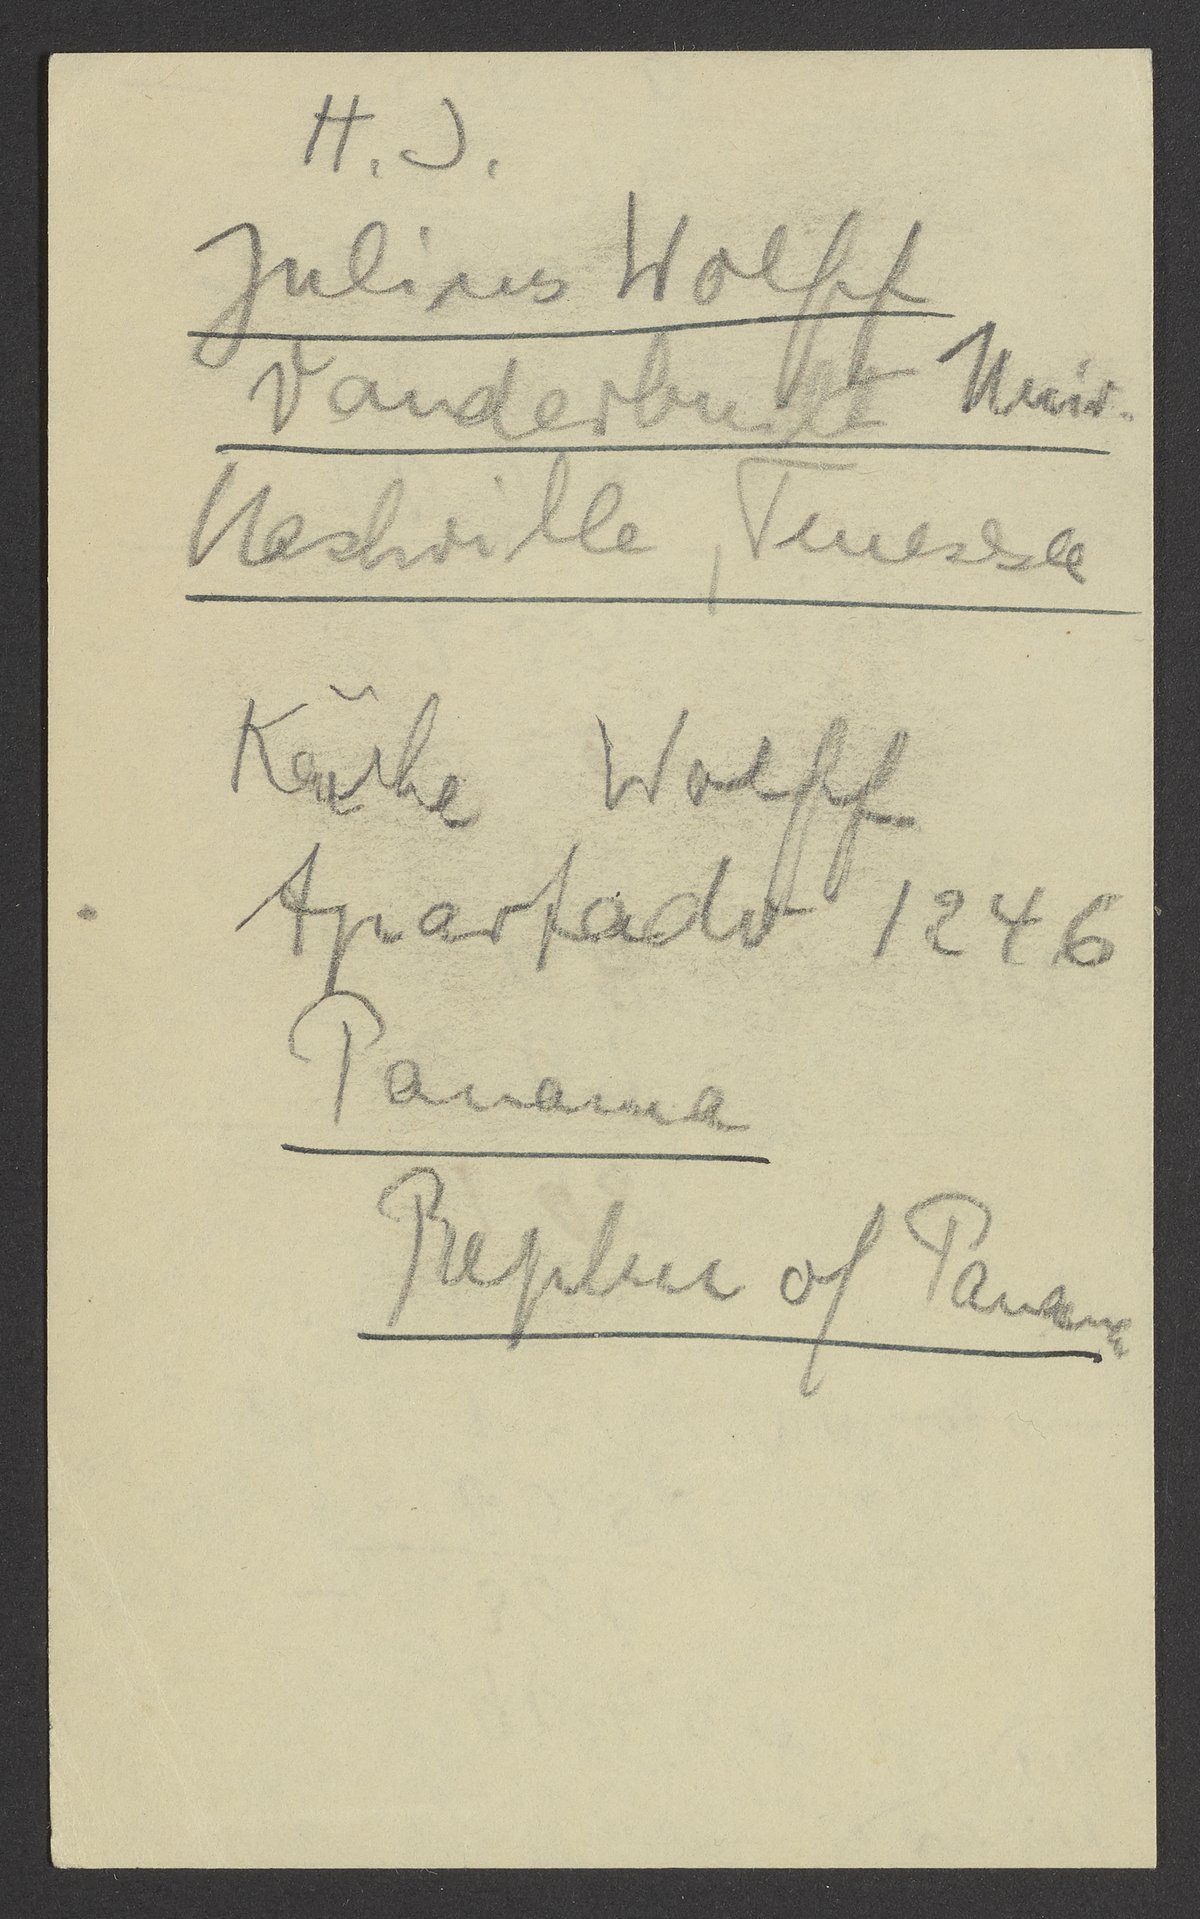 H. J.
Julius Wolff
Vanderbuilt Univ.
Nashville, Tenessee
Käthe Wolff
Apartado 1246
Panama
of Panama